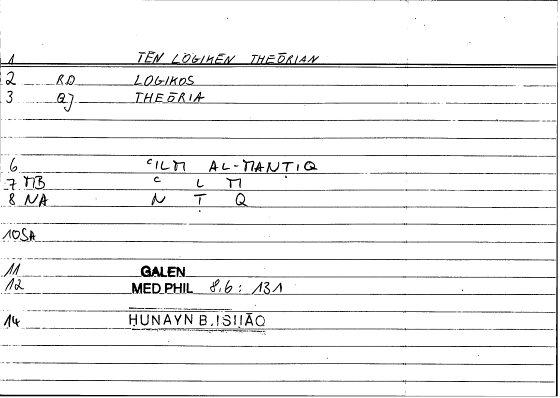 1 TĒN LOGIKĒN THEŌRIAN
2 RD LOGIKOS
3 QJ THEŌRIA
6 ʿILM AL-MANṬIQ
7 MB ʿ L M
8 NA N Ṭ Q
10 SA
11 GALEN
12 MED.PHIL 8,6: 131
14 HUNAYN B. ISḤĀQ